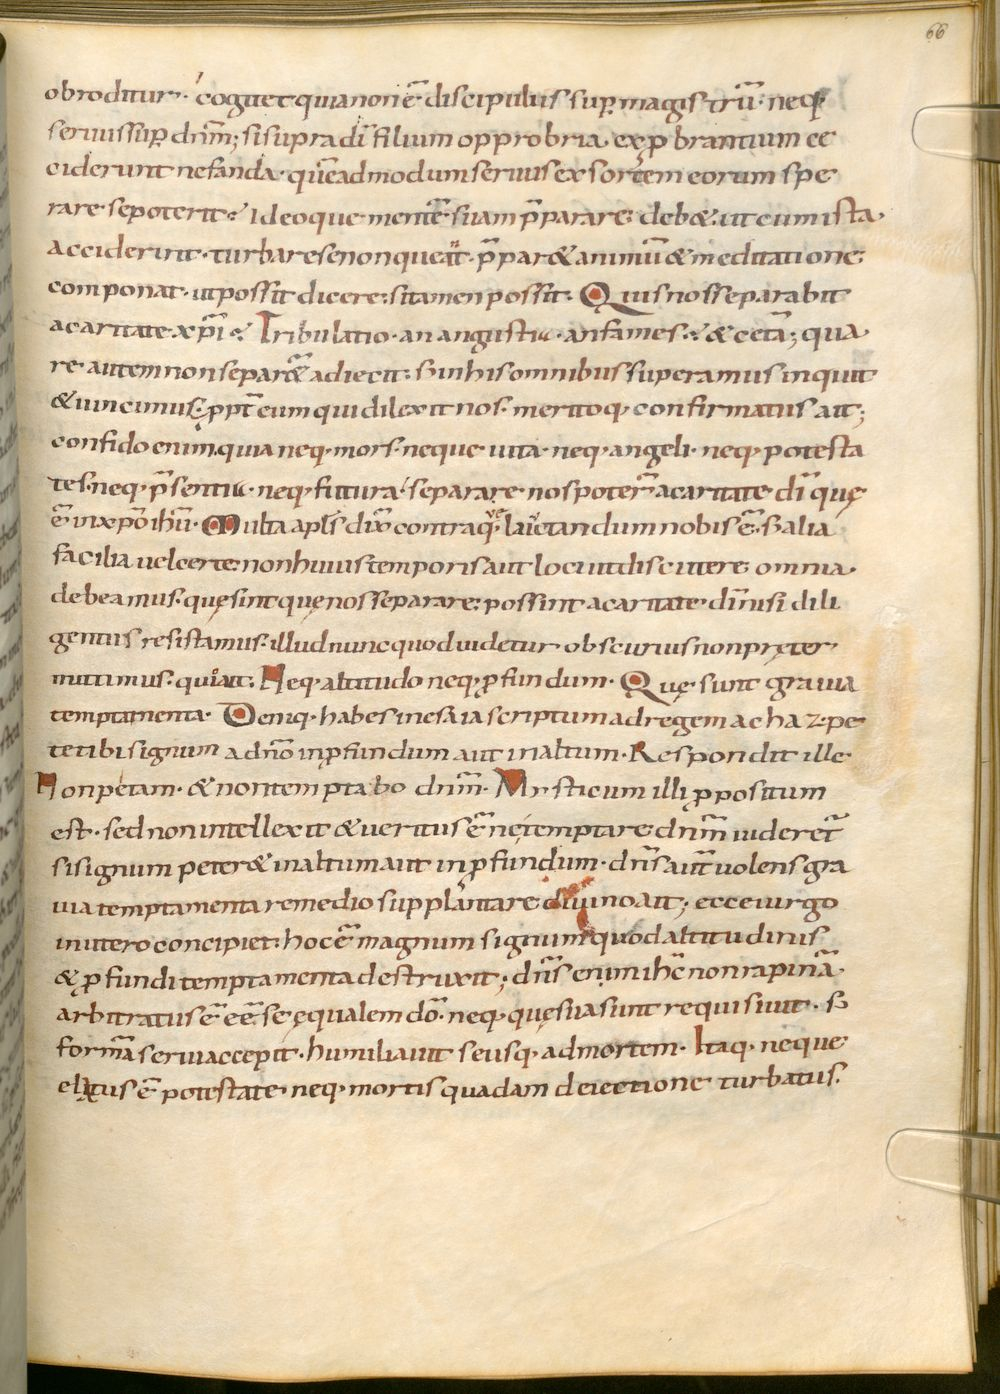 66
obroditur· cogitet quia non ē discipulus sup̱ magistrū· neq;
seruus sup̱ dnm̄; si supra dī filium opprobria exp̱brantium ec
ciderunt nefanda· quēadmodum seruus exsortem eorum spe
rare se poterit? Ideoque mentē suam p̄parare deb&· ut cum ista
acciderint· turbare se non queat· p̄par& animū & meditatione
componat· ut possit dicere· si tamen possit· Quis nos separabit
a caritate xp̄i? Tribulatio· an angustia· an fames? & cetā; qua
re autem non separ& adiecit· S; in his omnibus superamus inquit
& uincimus· p̱pt̄ eum qui dilexit nos· meritoq; confirmatus ait;
confido enim quia neq· mors· neque uita· neq· angeli· neq· potesta
tes· neq· p̄sentia· neq· futura· separare nos poterit a caritate dī quę
ē in xp̄o ihū· Multa apls̄ dix̄ contraq; ue laetandum nobis ē· S; alia
facilia uel certe non huius temporis aut loci ut discutere omnia
debeamus· quę sint quę nos separare possint a caritate dī nisi dili
gentius resistamus· illud nunc quod uidetur obscurius non pręter
mittimus· quia ait· Neq· altitudo neq· p̱fundum· Quę sunt grauia
temptamenta· Deniq· habes in esaia scriptum ad regem achaz· pe
te tibi signum a dnō in p̱fundum aut in altum· Respondit ille
Non petam· & non temptabo dnm̄· Mysticum illi p̱positum
est· sed non intellexit & ueritus ē ne temptare dnm̄ uideret̄
si signum peter& in altum aut in p̱fundum· dns̄ aut̄ uolens gra
uia temptamenta remedio supplantare diuino ait; ecce uirgo
in utero concipiet· hoc ē magnum signum quod altitudinis
& p̱fundi temptamenta destruxit; dns̄ enim ihc̄ non rapinā
arbitratus ē eē se ęqualem dō· neq· quę sua sunt requisiuit· S;
formā serui accepit· humiliauit se usq· ad mortem· Itaq· neque
elatus ē potestate neq· mortis quadam deiectione turbatus·